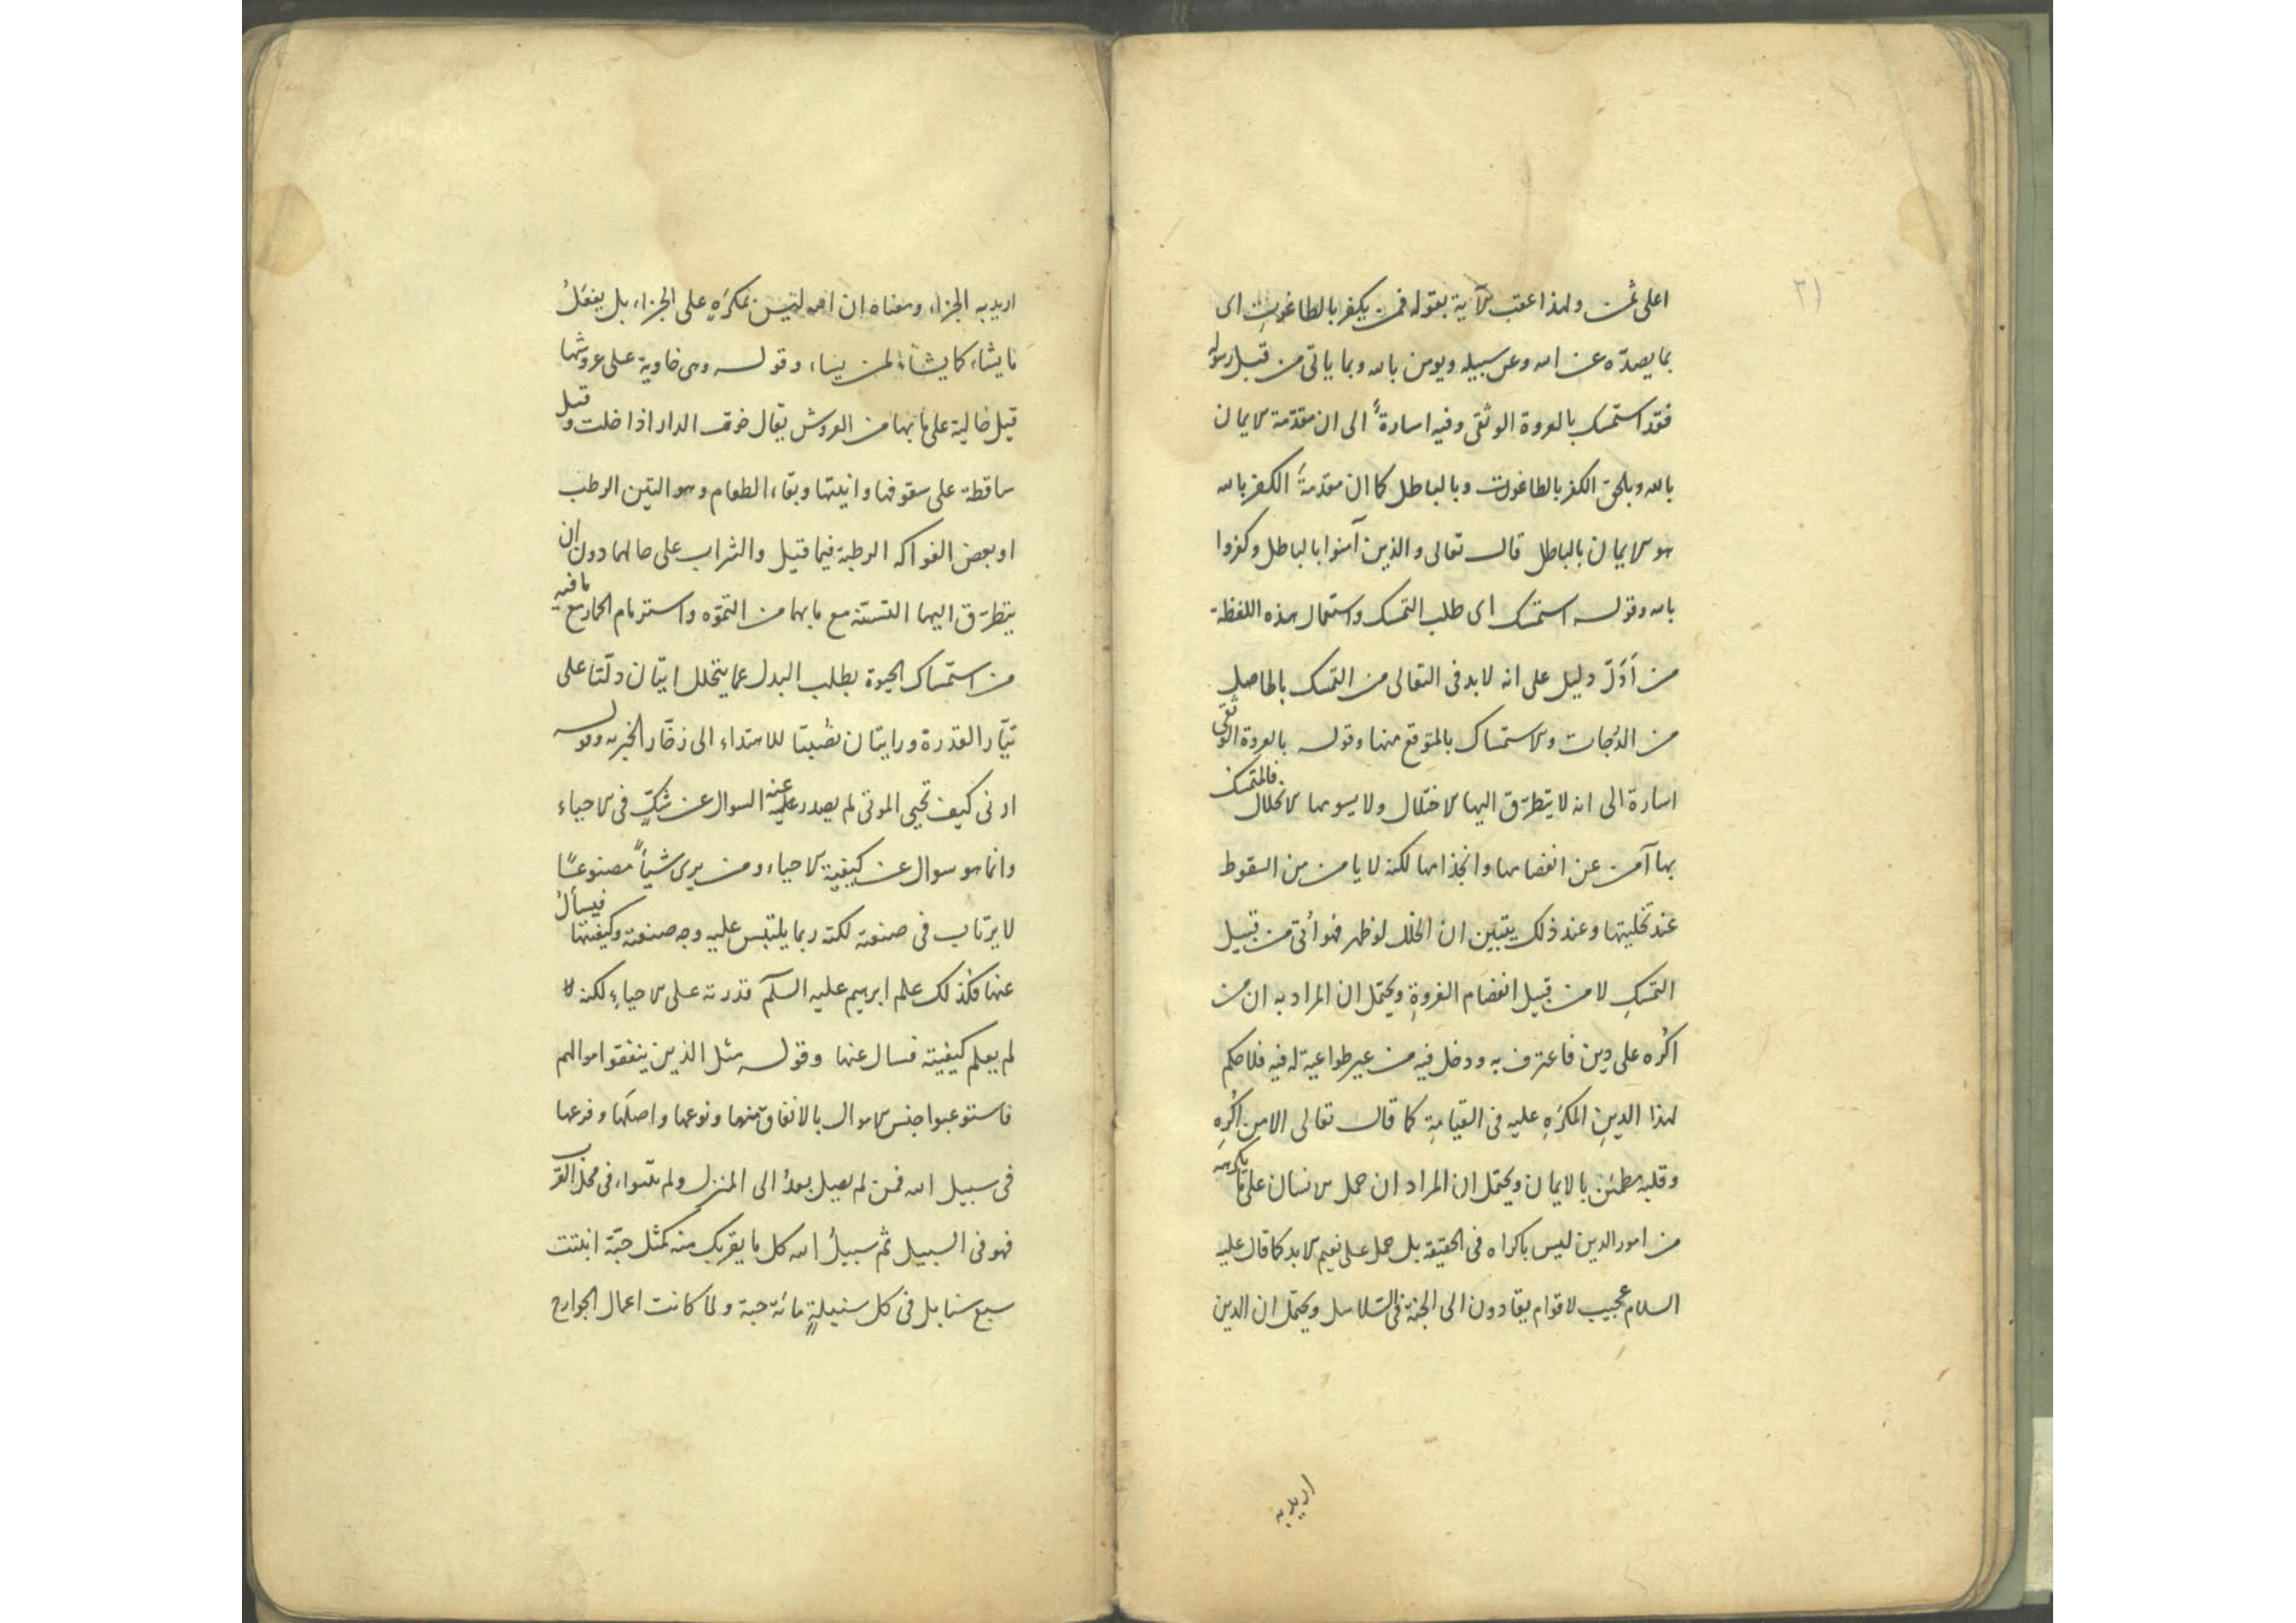 ٢١
اعلى ثمن ولهذا عقب الآية بقوله فمن يكفر بالطاغوت اى
بما يصدّه عن الله وعن سبيله ويومن بالله وبما ياتى من قبل رسوله
فقد استمسك بالعروة الوثقى وفيه اسارةٌ الى ان مقدّمة الايمان
بالله ويلحق الكفر بالطاغوت وبالباطل كما ان مقدمةَ الكفر بالله
هو الايمان بالباطل قال تعالى والذين آمنوا بالباطل وكفروا
بالله وقوله استمسك اى طلب التمسك واستعمال هذه اللفظة
من اَدَلّ دليل على انه لا بد فى التعالى من التمسك بالحاصل
من الدرجات والاستمساك بالمتوقع منها وقوله بالعروة الوثقى
اسارة الى انه لا يتطرّق اليها الاختلال ولا يسومها الانحلال فالمتمسك
بها آمن عن انفصامها وانجذامها لكنه لا يامن من السقوط
عند تخليتها وعند ذلك يتبين ان الخلل لو ظهر فهو أتى من قبيل
التمسكِ لا من قبيل انفصام العروةِ ويحتمل ان المراد به ان من
اكُره على دين فاعترف به ودخل فيه من غير طواعية له فيه فلا حكم
لهذا الدينِ المكرَهِ عليه فى القيامةِ كما قال تعالى الا من اُكْرِه
وقلبه مطمئن بالايمان ويحتمل ان المراد ان حمل الانسان على ما يكرهه
من امور الدين ليس باكراه فى الحقيقة بل حمل على نعيم الابد كما قال عليه
السلام عجيب لاقوام يقادون الى الجنة فى السّلاسل ويحتمل ان الدين
اريد به
اريد به الجزاء ومعناه ان الله ليس بمكرَهٍ على الجزاء بل يفعَلُ
ما يشاء كما يشاءُ لمن يشاء وقوله وهى خاوية على عروشها
قيل خالية على ما بها من العروش يقال خوت الدار اذا خلت وقيل
ساقطة على سقوفها وابنيتها وبقاء الطعام وهو التين الرطب
او بعض الفواكه الرطبة فيما قيل والشراب على حالهما دون ان
يتطرّق اليهما التسنّه مع ما بهما من التموّه واسترمام الحمار مع ما فيه
من استمساك الحيوة بطلب البدل عما يتحلل ايتان دلّتا على
تيّار القدرة ورايتان نصُبتا للاهتداء الى زخّار الخبرة وقوله
ارنى كيف تحيى الموتى لم يصدر عنه السوال عن شكٍّ فى الاحياء
وانما هو سوال عن كيفية الاحياء ومن يرى شيأً مصنوعًا
لا يرتاب فى صنعته لكنه ربما يلتبس عليه وجه صنعته وكيفيتها فيسألُ
عنها فكذلك علم ابرهيم عليه السلم قدرته على الاحياءِ لكنه لا
لم يعلم كيفيته فسال عنها وقوله مثل الذين ينفقوا موالهم
فاستوعبوا جنس الاموال بالانفاق منهما ونوعها واصلَها وفرعها
فى سبيل الله فمن لم يصل بعدُ الى المنزل ولم يتبواء فى محل القرب
فهو فى السبيل ثم سبيلُ الله كل ما يقربك منه كمثل حبّة انبتت
سبع سنابل فى كل سنبلةٍ مائة حبة ولما كانت اعمال الجوارح